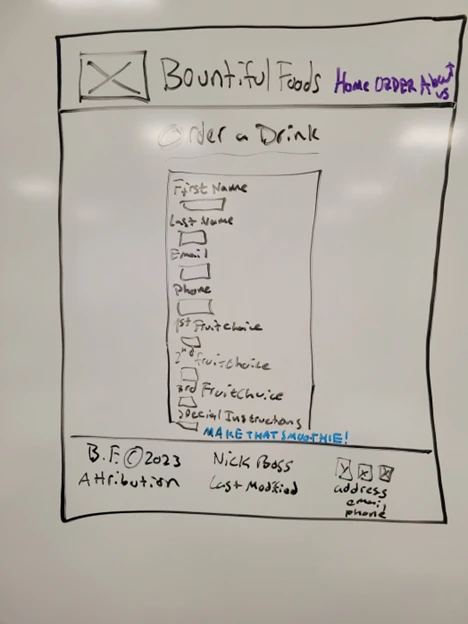 Bountiful Foods
Home ORDER About us
Order a Drink
First Name
Last Name
Email
Phone
1st Fruit choice
2nd Fruit Choice
3rd Fruit Choice
Special Instructions
MAKE THAT SMOOTHIE!
B.F. © 2023
Attribution
Nick Boss
Last Modified
address
email
phone